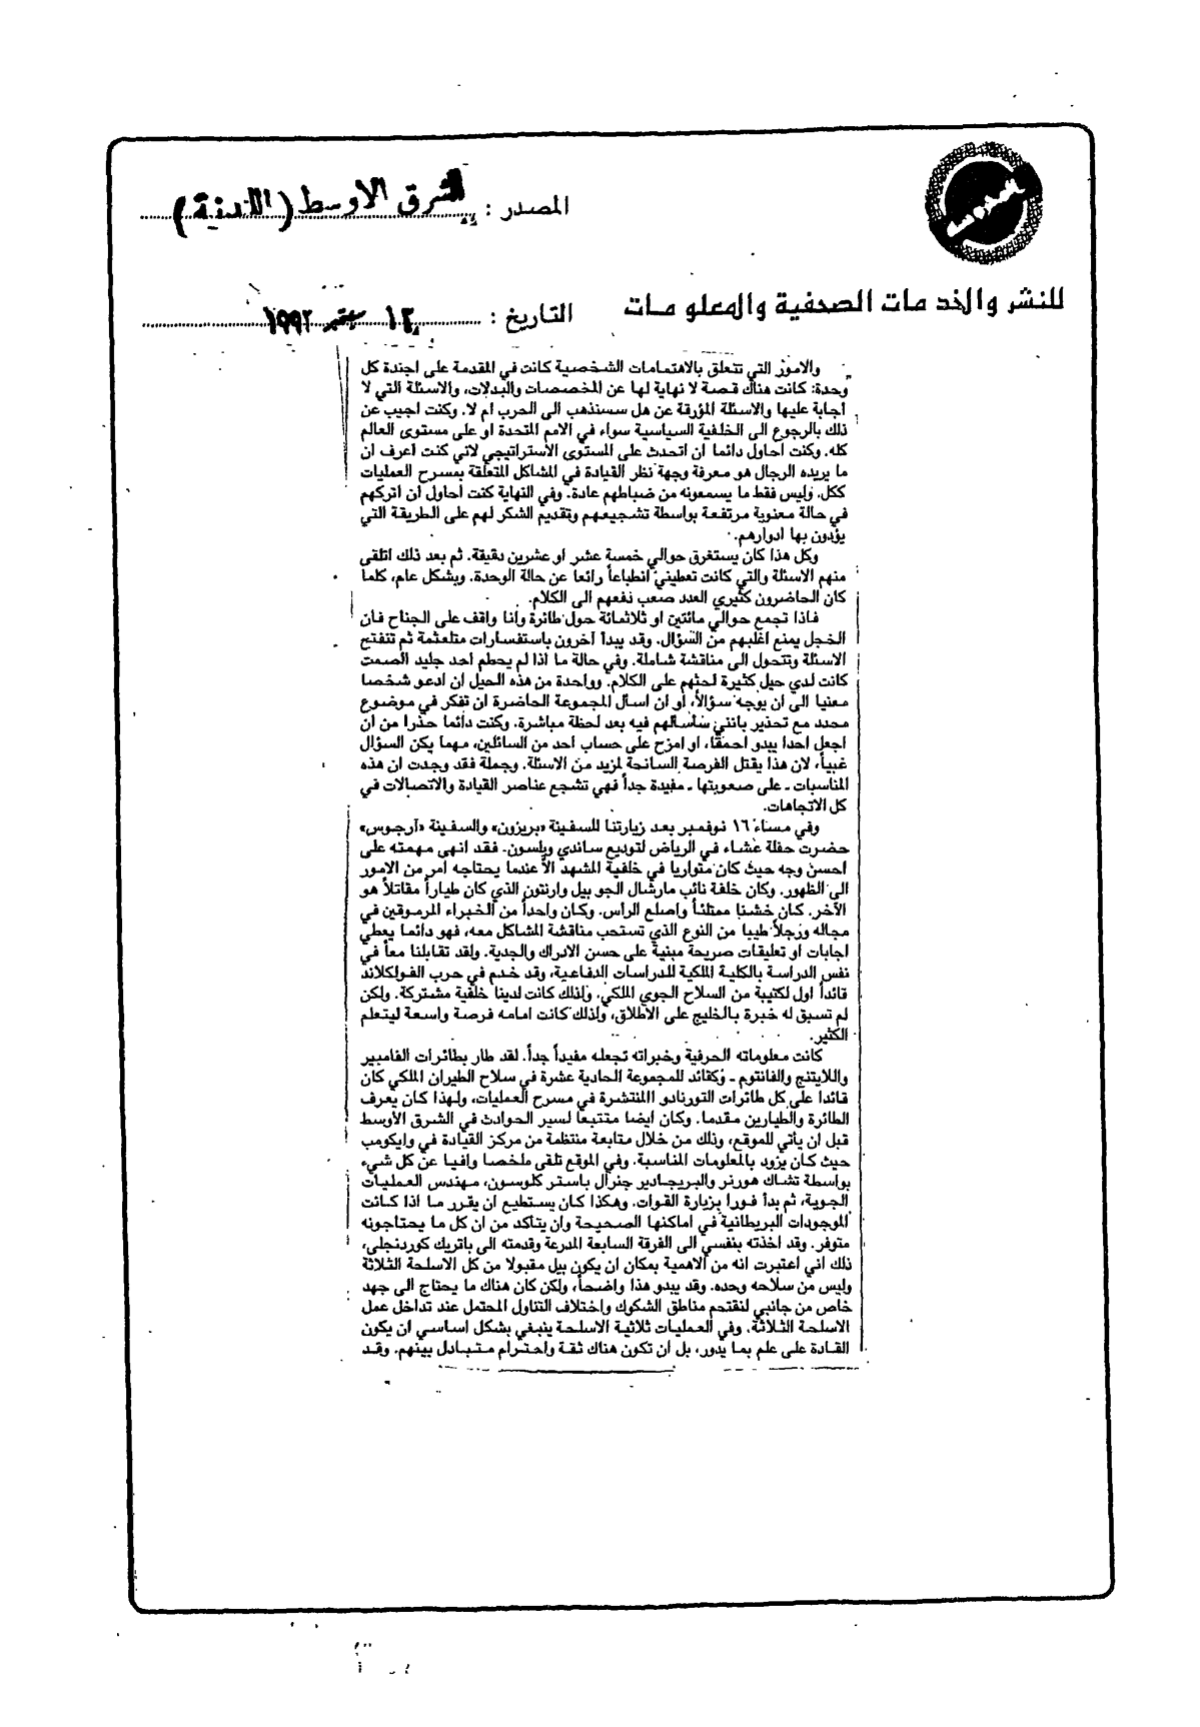 المصدر : الشرق الاوسط (اللندنية)
للنشر والخدمات الصحفية والمعلومات
التاريخ : ١٢ سبتمبر ١٩٩٢
والامور التي تتعلق بالاهتمامات الشخصية كانت في المقدمة على اجندة كل
وحدة: كانت هناك قصة لا نهاية لها عن المخصصات والبدلات، والاسئلة التي لا
اجابة عليها والاسئلة المؤرقة عن هل سنذهب الى الحرب ام لا. وكنت اجيب عن
ذلك بالرجوع الى الخلفية السياسية سواء في الامم المتحدة او على مستوى العالم
كله. وكنت احاول دائما ان اتحدث على المستوى الاستراتيجي لاني كنت اعرف ان
ما يريده الرجال هو معرفة وجهة نظر القيادة في المشاكل المتعلقة بمسرح العمليات
ككل. وليس فقط ما يسمعونه من ضباطهم عادة. وفي النهاية كنت احاول ان اتركهم
في حالة معنوية مرتفعة بواسطة تشجيعهم وتقديم الشكر لهم على الطريقة التي
يؤدون بها ادوارهم.
وكل هذا كان يستغرق حوالي خمسة عشر او عشرين دقيقة. ثم بعد ذلك اتلقى
منهم الاسئلة والتي كانت تعطيني انطباعاً رائعا عن حالة الوحدة. وبشكل عام، كلما
كان الحاضرون كثيري العدد صعب دفعهم الى الكلام.
فاذا تجمع حوالي مائتين او ثلاثمائة حول طائرة وأنا واقف على الجناح فان
الخجل يمنع اغلبهم من السؤال. وقد يبدأ آخرون باستفسارات متلعثمة ثم تنفتح
الاسئلة وتتحول الى مناقشة شاملة. وفي حالة ما اذا لم يحطم احد جليد الصمت
كانت لدي حيل كثيرة لحثهم على الكلام. وواحدة من هذه الحيل ان ادعو شخصا
معنيا الى ان يوجه سؤالاً، او ان اسأل المجموعة الحاضرة ان تفكر في موضوع
محدد مع تحذير بانني سأسالهم فيه بعد لحظة مباشرة. وكنت دائما حذرا من ان
اجعل احدا يبدو احمقا، او امزح على حساب احد من السائلين، مهما يكن السؤال
غبياً، لان هذا يقتل الفرصة السانحة لمزيد من الاسئلة. وجملة فقد وجدت ان هذه
المناسبات ـ على صعوبتها ـ مفيدة جداً فهي تشجع عناصر القيادة والاتصالات في
كل الاتجاهات.
وفي مساء ١٦ نوفمبر بعد زيارتنا للسفينة «بريزون» والسفينة «آرجوس»
حضرت حفلة عشاء في الرياض لتوديع ساندي ويلسون. فقد انهى مهمته على
احسن وجه حيث كان متواريا في خلفية المشهد الا عندما يحتاجه امر من الامور
الى الظهور. وكان خلفه نائب مارشال الجو بيل وارنتون الذي كان طياراً مقاتلاً هو
الآخر. كان خشنا ممتلئاً واصلع الرأس. وكان واحداً من الخبراء المرموقين في
مجاله ورجلاً طيبا من النوع الذي تستحب مناقشة المشاكل معه، فهو دائما يعطي
اجابات او تعليقات صريحة مبنية على حسن الادراك والجدية. ولقد تقابلنا معاً في
نفس الدراسة بالكلية الملكية للدراسات الدفاعية، وقد خدم في حرب الفولكلاند
قائداً اول لكتيبة من السلاح الجوي الملكي، ولذلك كانت لدينا خلفية مشتركة. ولكن
لم تسبق له خبرة بالخليج على الاطلاق، ولذلك كانت امامه فرصة واسعة ليتعلم
الكثير.
كانت معلوماته الحرفية وخبراته تجعله مفيداً جداً. لقد طار بطائرات الفامبير
واللايتنج والفانتوم ـ وكقائد للمجموعة الحادية عشرة في سلاح الطيران الملكي كان
قائدا على كل طائرات التورنادو المنتشرة في مسرح العمليات، ولهذا كان يعرف
الطائرة والطيارين مقدما. وكان ايضا متتبعاً لسير الحوادث في الشرق الأوسط
قبل ان يأتي للموقع، وذلك من خلال متابعة منتظمة من مركز القيادة في وايكومب
حيث كان يزود بالمعلومات المناسبة. وفي الموقع تلقى ملخصا وافيا عن كل شيء
بواسطة تشاك هورنر والبريجادير جنرال باستر كلوسون، مهندس العمليات
الجوية، ثم بدأ فورا بزيارة القوات. وهكذا كان يستطيع ان يقرر ما اذا كانت
الموجودات البريطانية في اماكنها الصحيحة وان يتاكد من ان كل ما يحتاجونه
متوفر. وقد اخذته بنفسي الى الفرقة السابعة المدرعة وقدمته الى باتريك كوردنجلى،
ذلك اني اعتبرت انه من الاهمية بمكان ان يكون بيل مقبولا من كل الاسلحة الثلاثة
وليس من سلاحه وحده. وقد يبدو هذا واضحاً، ولكن كان هناك ما يحتاج الى جهد
خاص من جانبي لنقتحم مناطق الشكوك واختلاف التناول المحتمل عند تداخل عمل
الاسلحة الثلاثة. وفي العمليات ثلاثية الاسلحة ينبغي بشكل اساسي ان يكون
القادة على علم بما يدور، بل أن تكون هناك ثقة واحترام متبادل بينهم. وقد